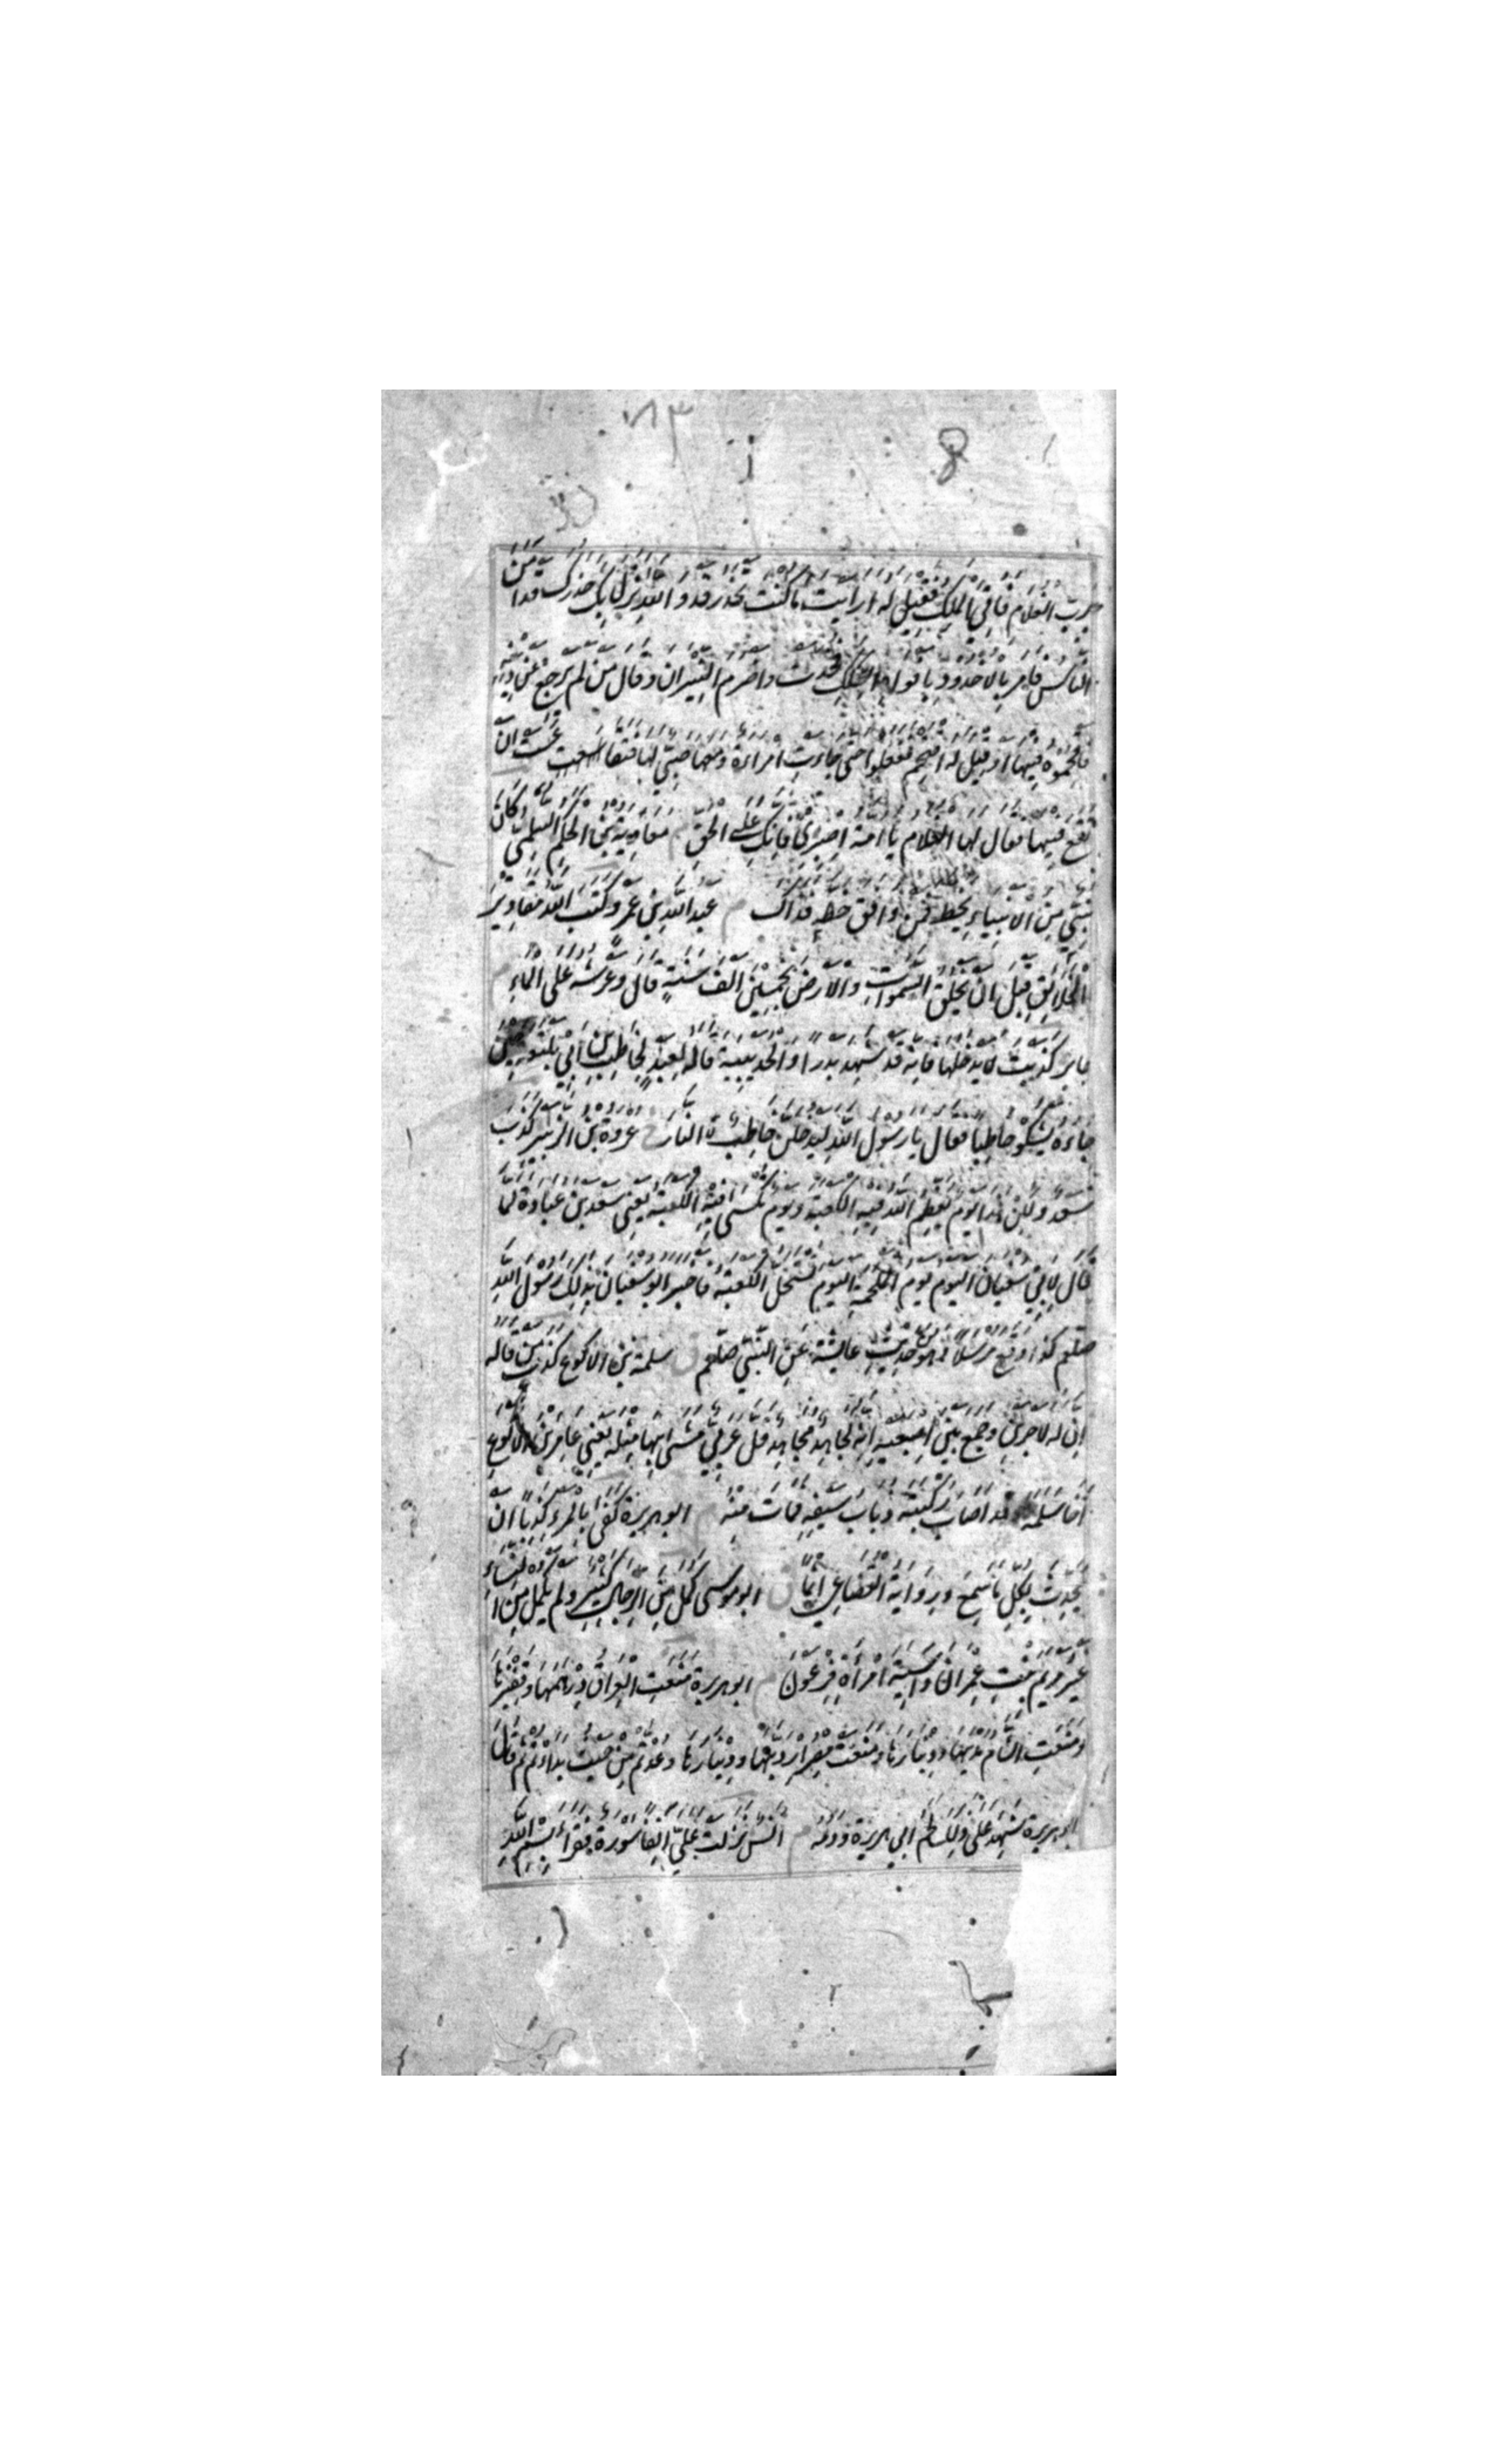 برب الغلام فاتي الملك فقيل له ارايت ما كنت تحذر قد والله نزل بك حذرك قد امن
الناس فامر بالاخدود بافواه السكك فخدت واضرم النيران وقال من لم يرجع عن دينه
فاقحموه فيها او قيل له اقتحم ففعلوا حتى جاءت امراءة ومعها صبي لها فتقاعست ان
تقع فيها فقال لها الغلام يا امه اصبري فانك على الحق م معاوية بن الحكم السلمي كان
نبي من الانبياء يخط فمن وافق خطه فذاك م عبد الله بن عمرو كتب الله مقادير
الخلائق قبل ان يخلق السموات والارض بخمسين الف سنة قال وعرشه على الماء م
جابر كذبت لا يدخلها فانه قد شهد بدرا والحديبية قاله لعبد لحاطب بن ابي بلتعة حين
جاءه يشكو حاطبا فقال يا رسول الله ليدخلن حاطب النار خ عروة بن الزبير كذب
سعد ولكن هذا يوم يعظم الله فيه الكعبة ويوم تكسى فيه الكعبة يعني سعد بن عبادة لما
قال لابي سفيان اليوم يوم الملحمة اليوم تستحل الكعبة فاخبر ابو سفيان بذلك رسول الله
صلعم كذا وقع مرسلا وهو من حديث عايشة عن النبي صلعم ق سلمة بن الاكوع كذب من قاله
ان له لاجرين وجمع بين اصبعيه انه لجاهد مجاهد قل عربي مشى بها مثله يعني عامر بن الاكوع
اخا سلمة وقد اصاب ركبته ذباب سيفه فمات منه م ابو هريرة كفى بالمرء كذبا ان
يحدث بكل ما سمع وبرواية القضاعي اثما ق ابو موسى كمل من الرجال كثير ولم يكمل من النساء
غير مريم بنت عمران واسية امراة فرعون م ابو هريرة منعت العراق درهمها وقفيزها
ومنعت الشام مديها ودينارها ومنعت مصر اردبها ودينارها وعدتم من حيث بداءتم ثم قال
ابو هريرة شهد على ذلك لحم ابي هريرة ودمه م انس نزلت علي انفا سورة فقراء بسم الله